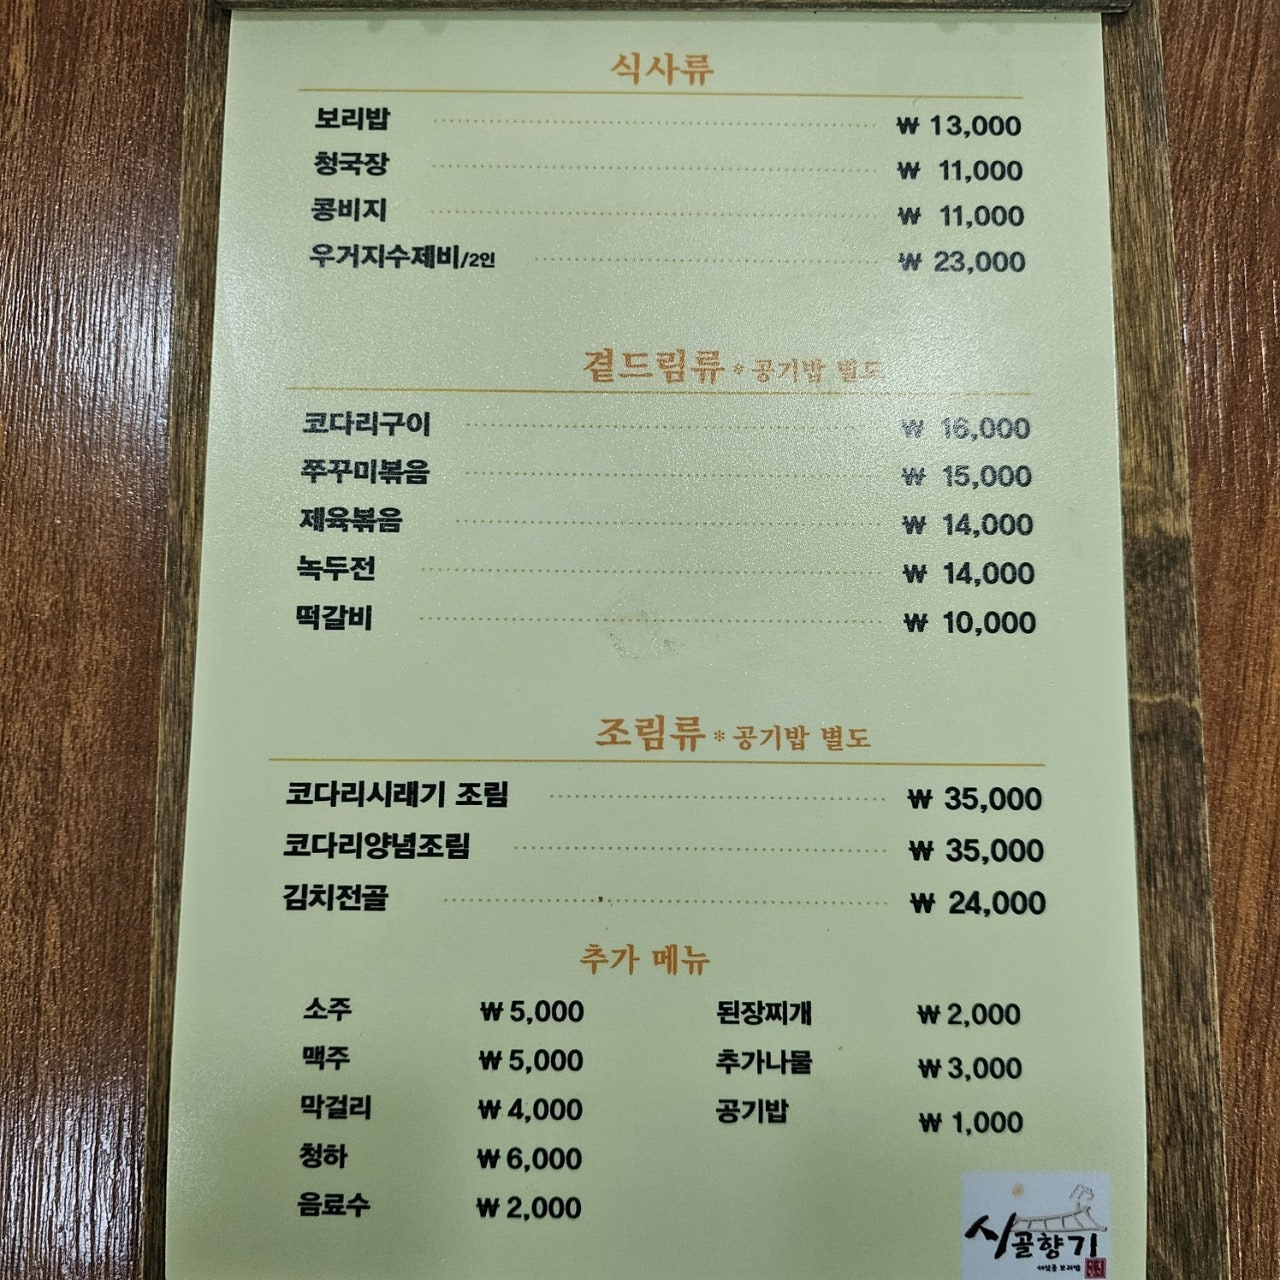 식사류
보리밥 ₩ 13,000
청국장 ₩ 11,000
콩비지 ₩ 11,000
우거지수제비/2인 ₩ 23,000
곁드림류 * 공기밥 별도
코다리구이 ₩ 16,000
쭈꾸미볶음 ₩ 15,000
제육볶음 ₩ 14,000
녹두전 ₩ 14,000
떡갈비 ₩ 10,000
조림류 * 공기밥 별도
코다리시래기 조림 ₩ 35,000
코다리양념조림 ₩ 35,000
김치전골 ₩ 24,000
추가 메뉴
소주 ₩ 5,000 된장찌개 ₩ 2,000
맥주 ₩ 5,000 추가나물 ₩ 3,000
막걸리 ₩ 4,000 공기밥 ₩ 1,000
청하 ₩ 6,000
음료수 ₩ 2,000
시골향기
보리밥